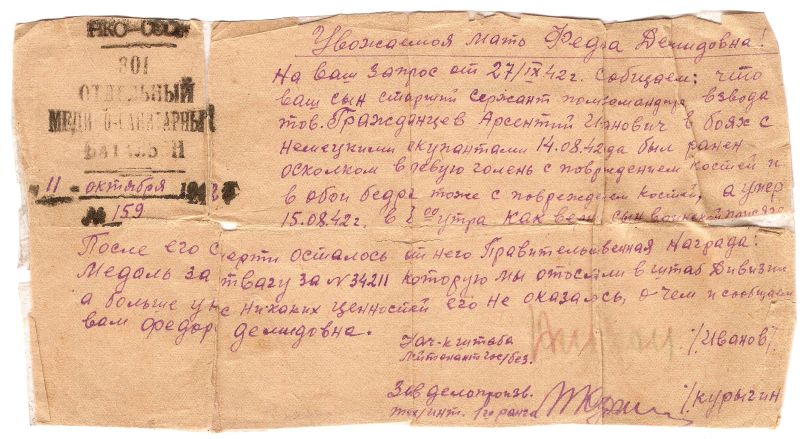 НКО-СССР
301
ОТДЕЛЬНЫЙ
МЕДИКО-САНИТАРНЫЙ
БАТАЛЬОН
„11„ октября 1942 г
№ 159
Уважаемая мать Федра Демидовна!
На ваш запрос от 27/IX 42г. сообщаем: что
ваш сын старший сержант помкомандира взвода
тов. Гражданцев Арсентий Иванович в боях с
немецкими окупантами 14.08.42да был ранен
осколком в левую голень с повреждением костей и
в обои бедра тоже с повреждением костей, а умер
15.08.42г. в 7 00 утра как верн. сын воинской присяге
После его смерти осталось от него Правительственная Награда:
Медаль за отвагу за №34211 которую мы отослали в штаб Дивизии
а больше у нас никаких ценностей его не оказалось, о чем и сообщаем
вам Федора демидовна.
Нач-к штаба
Лейтенант гос/без.
/Иванов/.
Зав делопроизв.
тех/инт. 1го ранга
/Курыгин